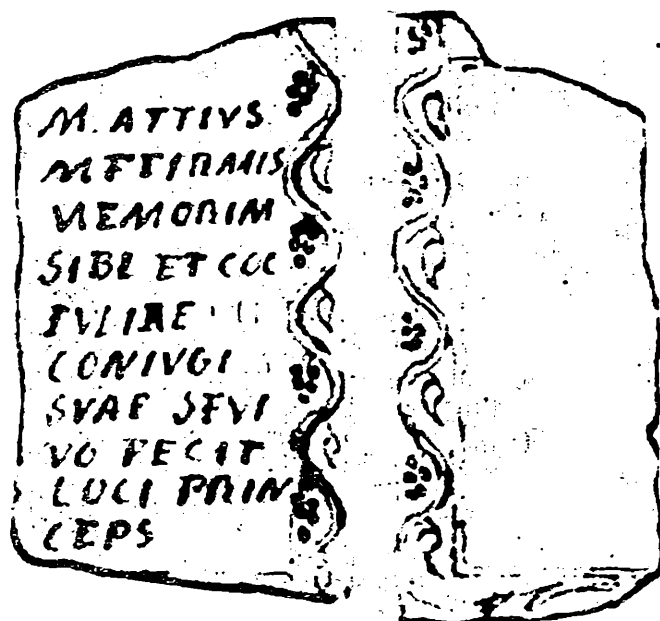 M. ATTIVS
MEMORIAM
SIBI ET COC
IVLIAE
CONIVGI
SVAE SEVI
VO FECIT
LOCI PRIN
CEPS